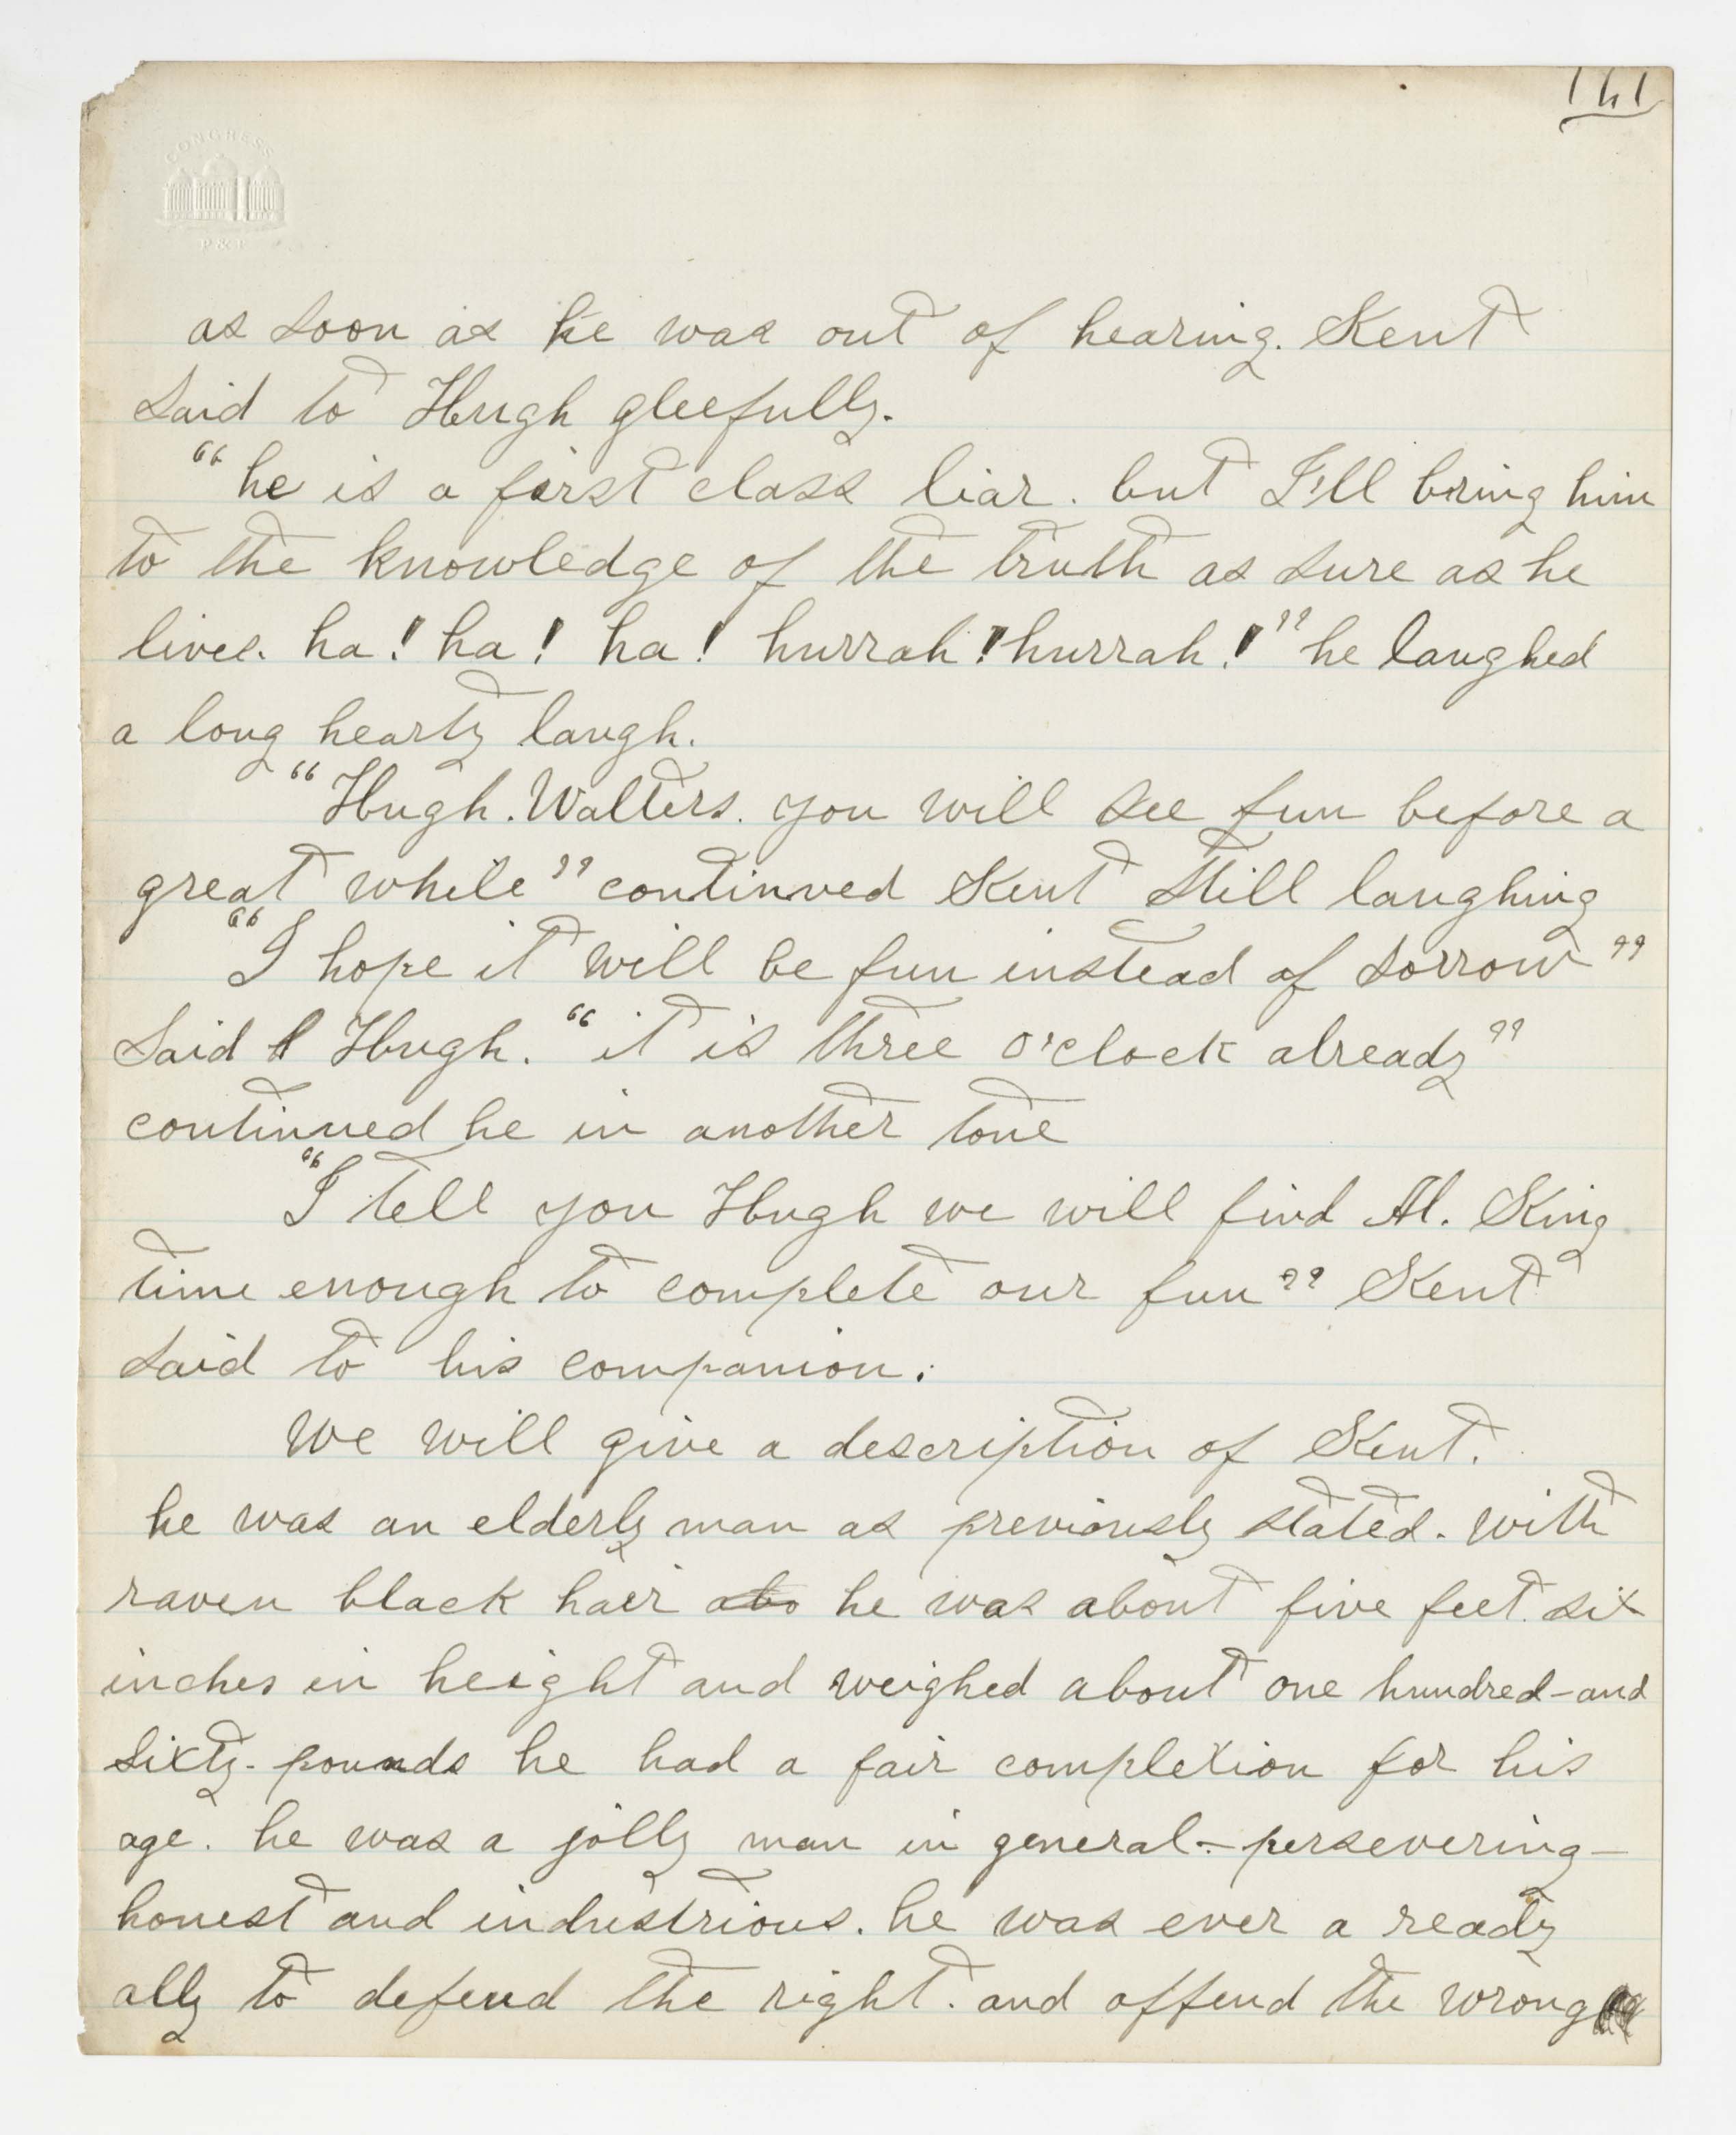 141
CONGRESS
P & P
as soon as he was out of hearing. Kent
said to Hugh gleefully.
"he is a first class liar. but I'll bring him
to the knowledge of the truth as sure as he
lives. ha! ha! ha! hurrah! hurrah!" he laughed
a long hearty laugh.
"Hugh. Walters. you will see fun before a
great while" continued Kent still laughing
"I hope it will be fun instead of sorrow"
said Hugh. "it is three o'clock already"
continued he in another tone
"I tell you Hugh we will find Al. King
time enough to complete our fun" Kent
said to his companion.
We will give a description of Kent.
he was an elderly man as previously stated. with
raven black hair he was about five feet six
inches in height and weighed about one hundred-and
sixty-pounds he had a fair complexion for his
age. he was a jolly man in general.-persevering-
honest and industrious. he was ever a ready
ally to defend the right. and offend the wrong